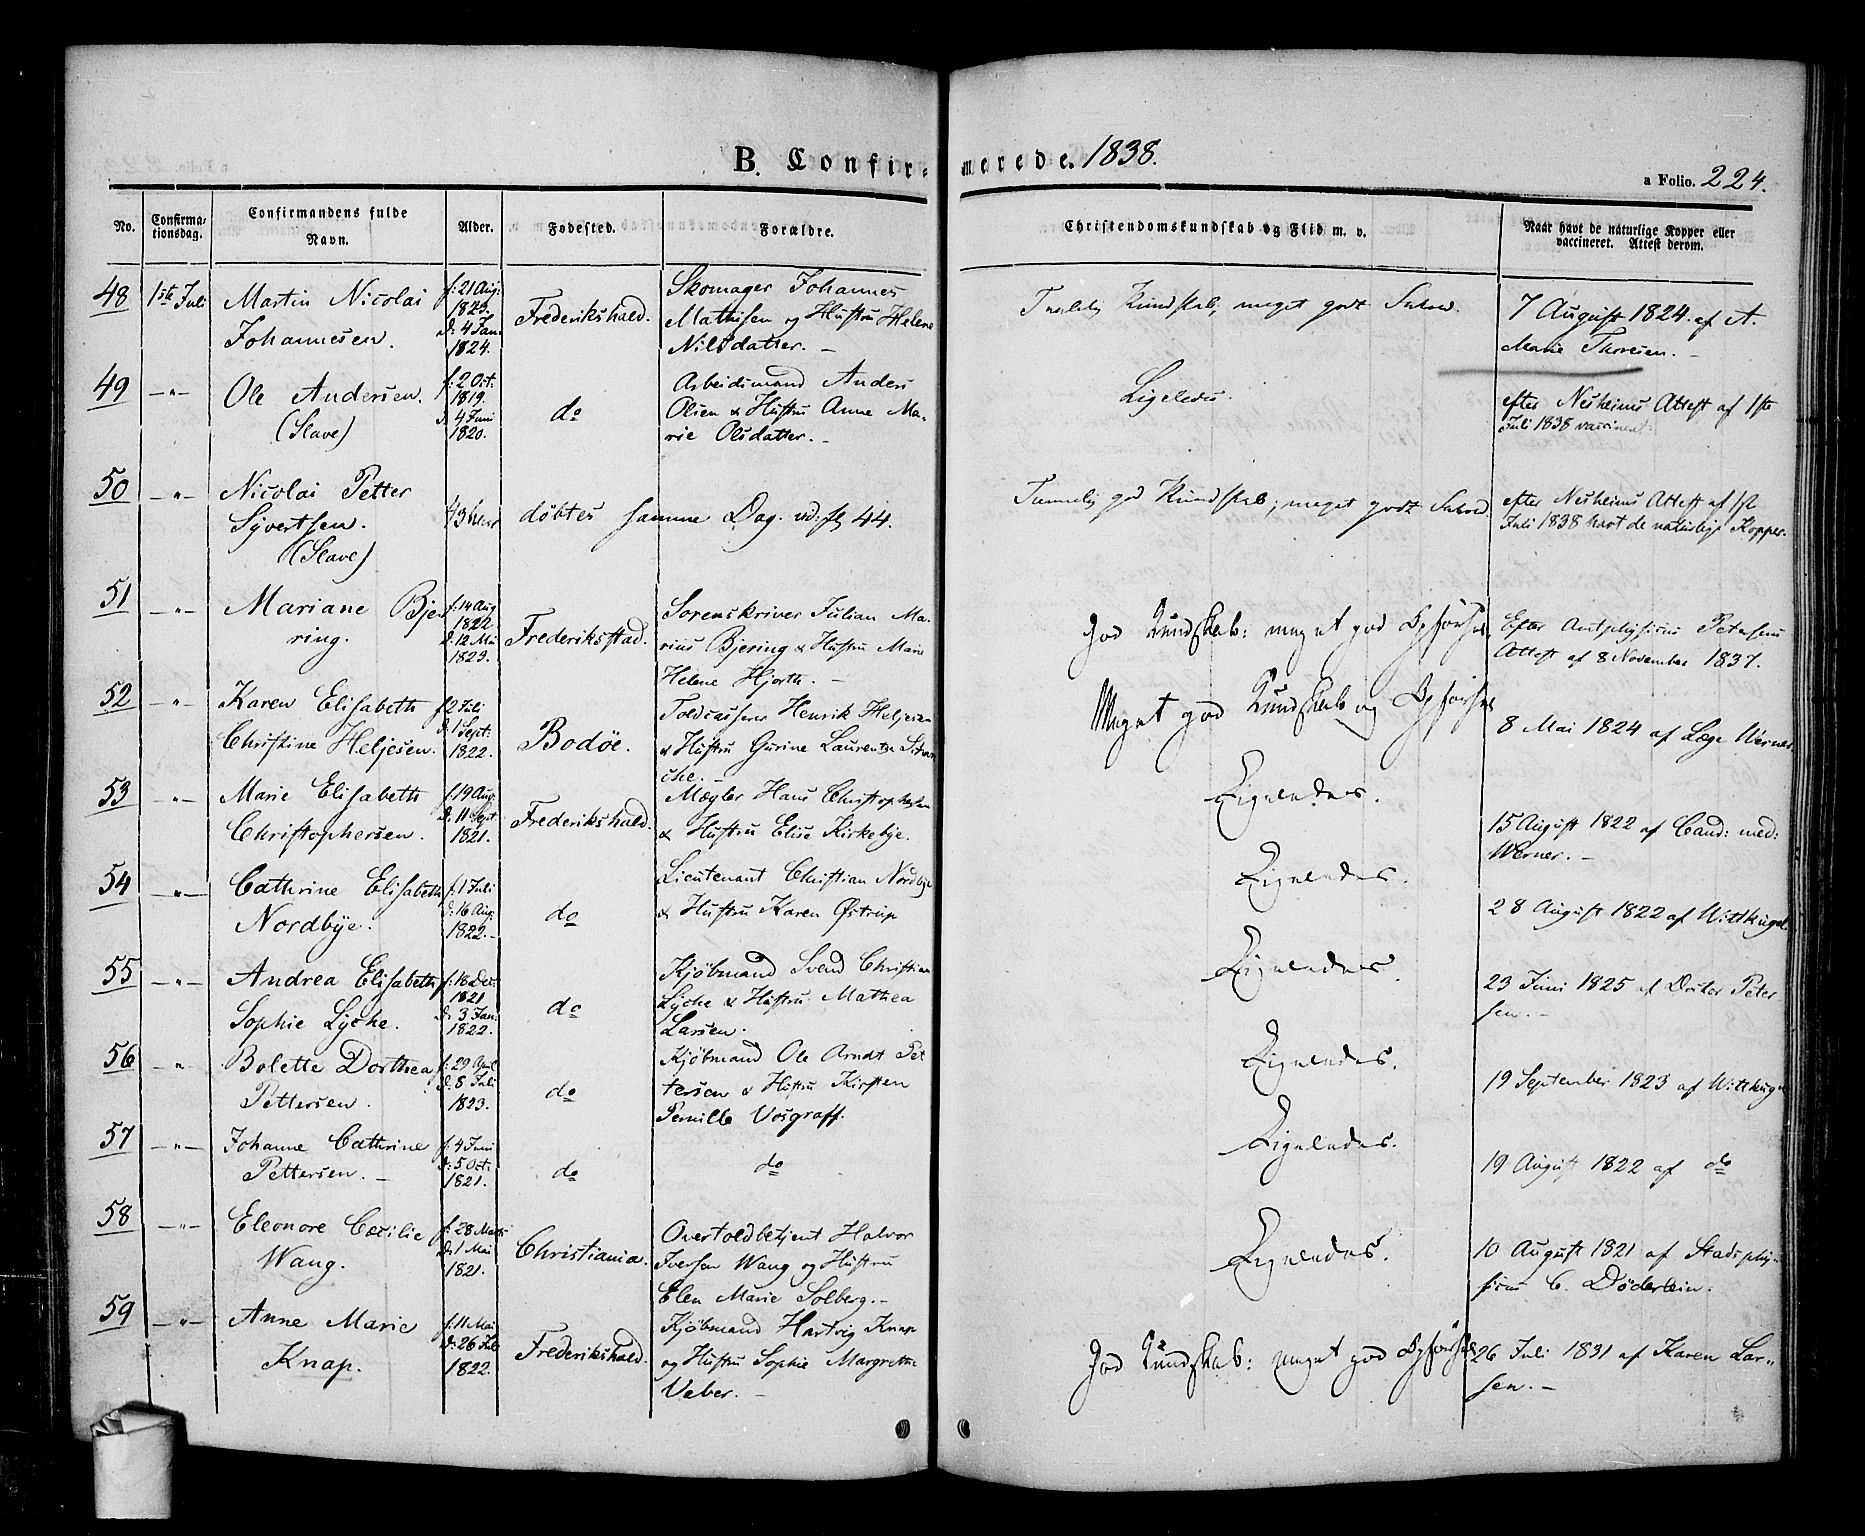 B. Confirmerede. 1838.
a Folio. 224.
No. Confirmationsdag. Confirmandens fulde Navn. Alder. Fodested. Forældre. Christendomskundskab og Flid m. v. Naar havt de naturlige Kopper eller vaccineret. Attest derom.
48 1ste Juli Martin Nicolai
Johannesen.
f: 21 Aug:
1823.
d: 4 Jan:
1824.
Frederikshald.
Skomager Johannes
Mathisen og Hustru Helene
Nilsdatter. –
Kundskab, meget godt
7 August 1824. af A.
Marie Thoresen. –
49 –"– Ole Andersen.
(Slave)
f: 2 Oct:
1819.
d: 4 Juni
1820.
do
Arbeidsmand Anders
Olsen & Hustru Anne Ma-
rie Olsdatter. –
Ligeledes.
efter Neuheims Attest af 1ste
Juli 1838 vaccineret.
50 –"– Nicolai Petter
Syvertsen.
(Slave)
døbtes samme Dag. vid: 44.
Temmelig god Kundskab; meget godt
efter Neuheims Attest af 1ste
Juli 1838 havt de naturlige Kopper.
51 –"– Mariane Bje-
ring.
f: 14 Aug
1822
d: 12 Mai
1823.
Frederiksstad.
Sorenskriver Julian Ma-
rius Bjering & Hustru Marie
Helene Hjorth. –
God Kundskab: meget god Opførsel.
Efter Amtphysicus Petersens
Attest af 8 November 1837.
52 –"– Karen Elisabeth
Christine Heljesen.
f 2 Juli
d: 1 Sept:
1822.
Bodøe.
Toldcasserer Henrik Heljesen
& Hustru Gurine Laurentze
che. –
Meget god Kundskab og Opførsel
8 Mai 1824 af Læge Werner.
53 –"– Marie Elisabeth
Christophersen.
f. 19 Aug:
d: 11 Sept:
1821.
Frederikshald.
Mægler Hans Christophersen
& Hustru Elise Kirkebye.
Ligeledes.
15 August 1822 af Cand: med:
Werner. –
54 –"– Cathrine Elisabeth
Nordbye.
f. 1 Juli
d: 16 Aug:
1822. –
do
Lieutenant Christian Nordbye
& Hustru Karen Østrup
Ligeledes.
28 August 1822 af Wittkugel
55 –"– Andrea Elisabeth
Sophie Lyche.
f: 18 Dec:
1821
d: 3 Jan:
1822.
do
Kjøbmand Svend Christian
Lyche & Hustru Mathea
Larsen.
Ligeledes.
23 Juni 1825 af Docter Peter
sen. –
56 –"– Bolette Dorthea
Pettersen.
f: 29 April
d: 8 Juli
1823.
do
Kjøbmand Ole Arndt Pet
tersen & Hustru Kirsten
Pernille Vosgraff.
Ligeledes.
19 September 1823 af Wittkugel
57 –"– Johanne Cathrine
Pettersen. –
f: 4 Juni
d: 5 Oct:
1821.
do
do
Ligeledes.
19 August 1822 af do
58 –"– Eleonore Cecilie
Wang.
f: 28 Marts
d: 1 Mai
1821.
Christiania.
Overtoldbetjent Halvor
Iversen Wang og Hustru
Elen Marie Solberg. –
Ligeledes.
10 August 1821 af Stadsphy-
sicus C. Döderlein.
59 –"– Anne Marie
Knap.
f: 11 Mai
d: 26 Juli
1822.
Frederikshald.
Kjøbmand Hartvig Knap
og Hustru Sophie Margrethe
Veber. –
God Kundskab: meget god Opførsel
26 Juli 1831 af Karen Lar-
sen. –